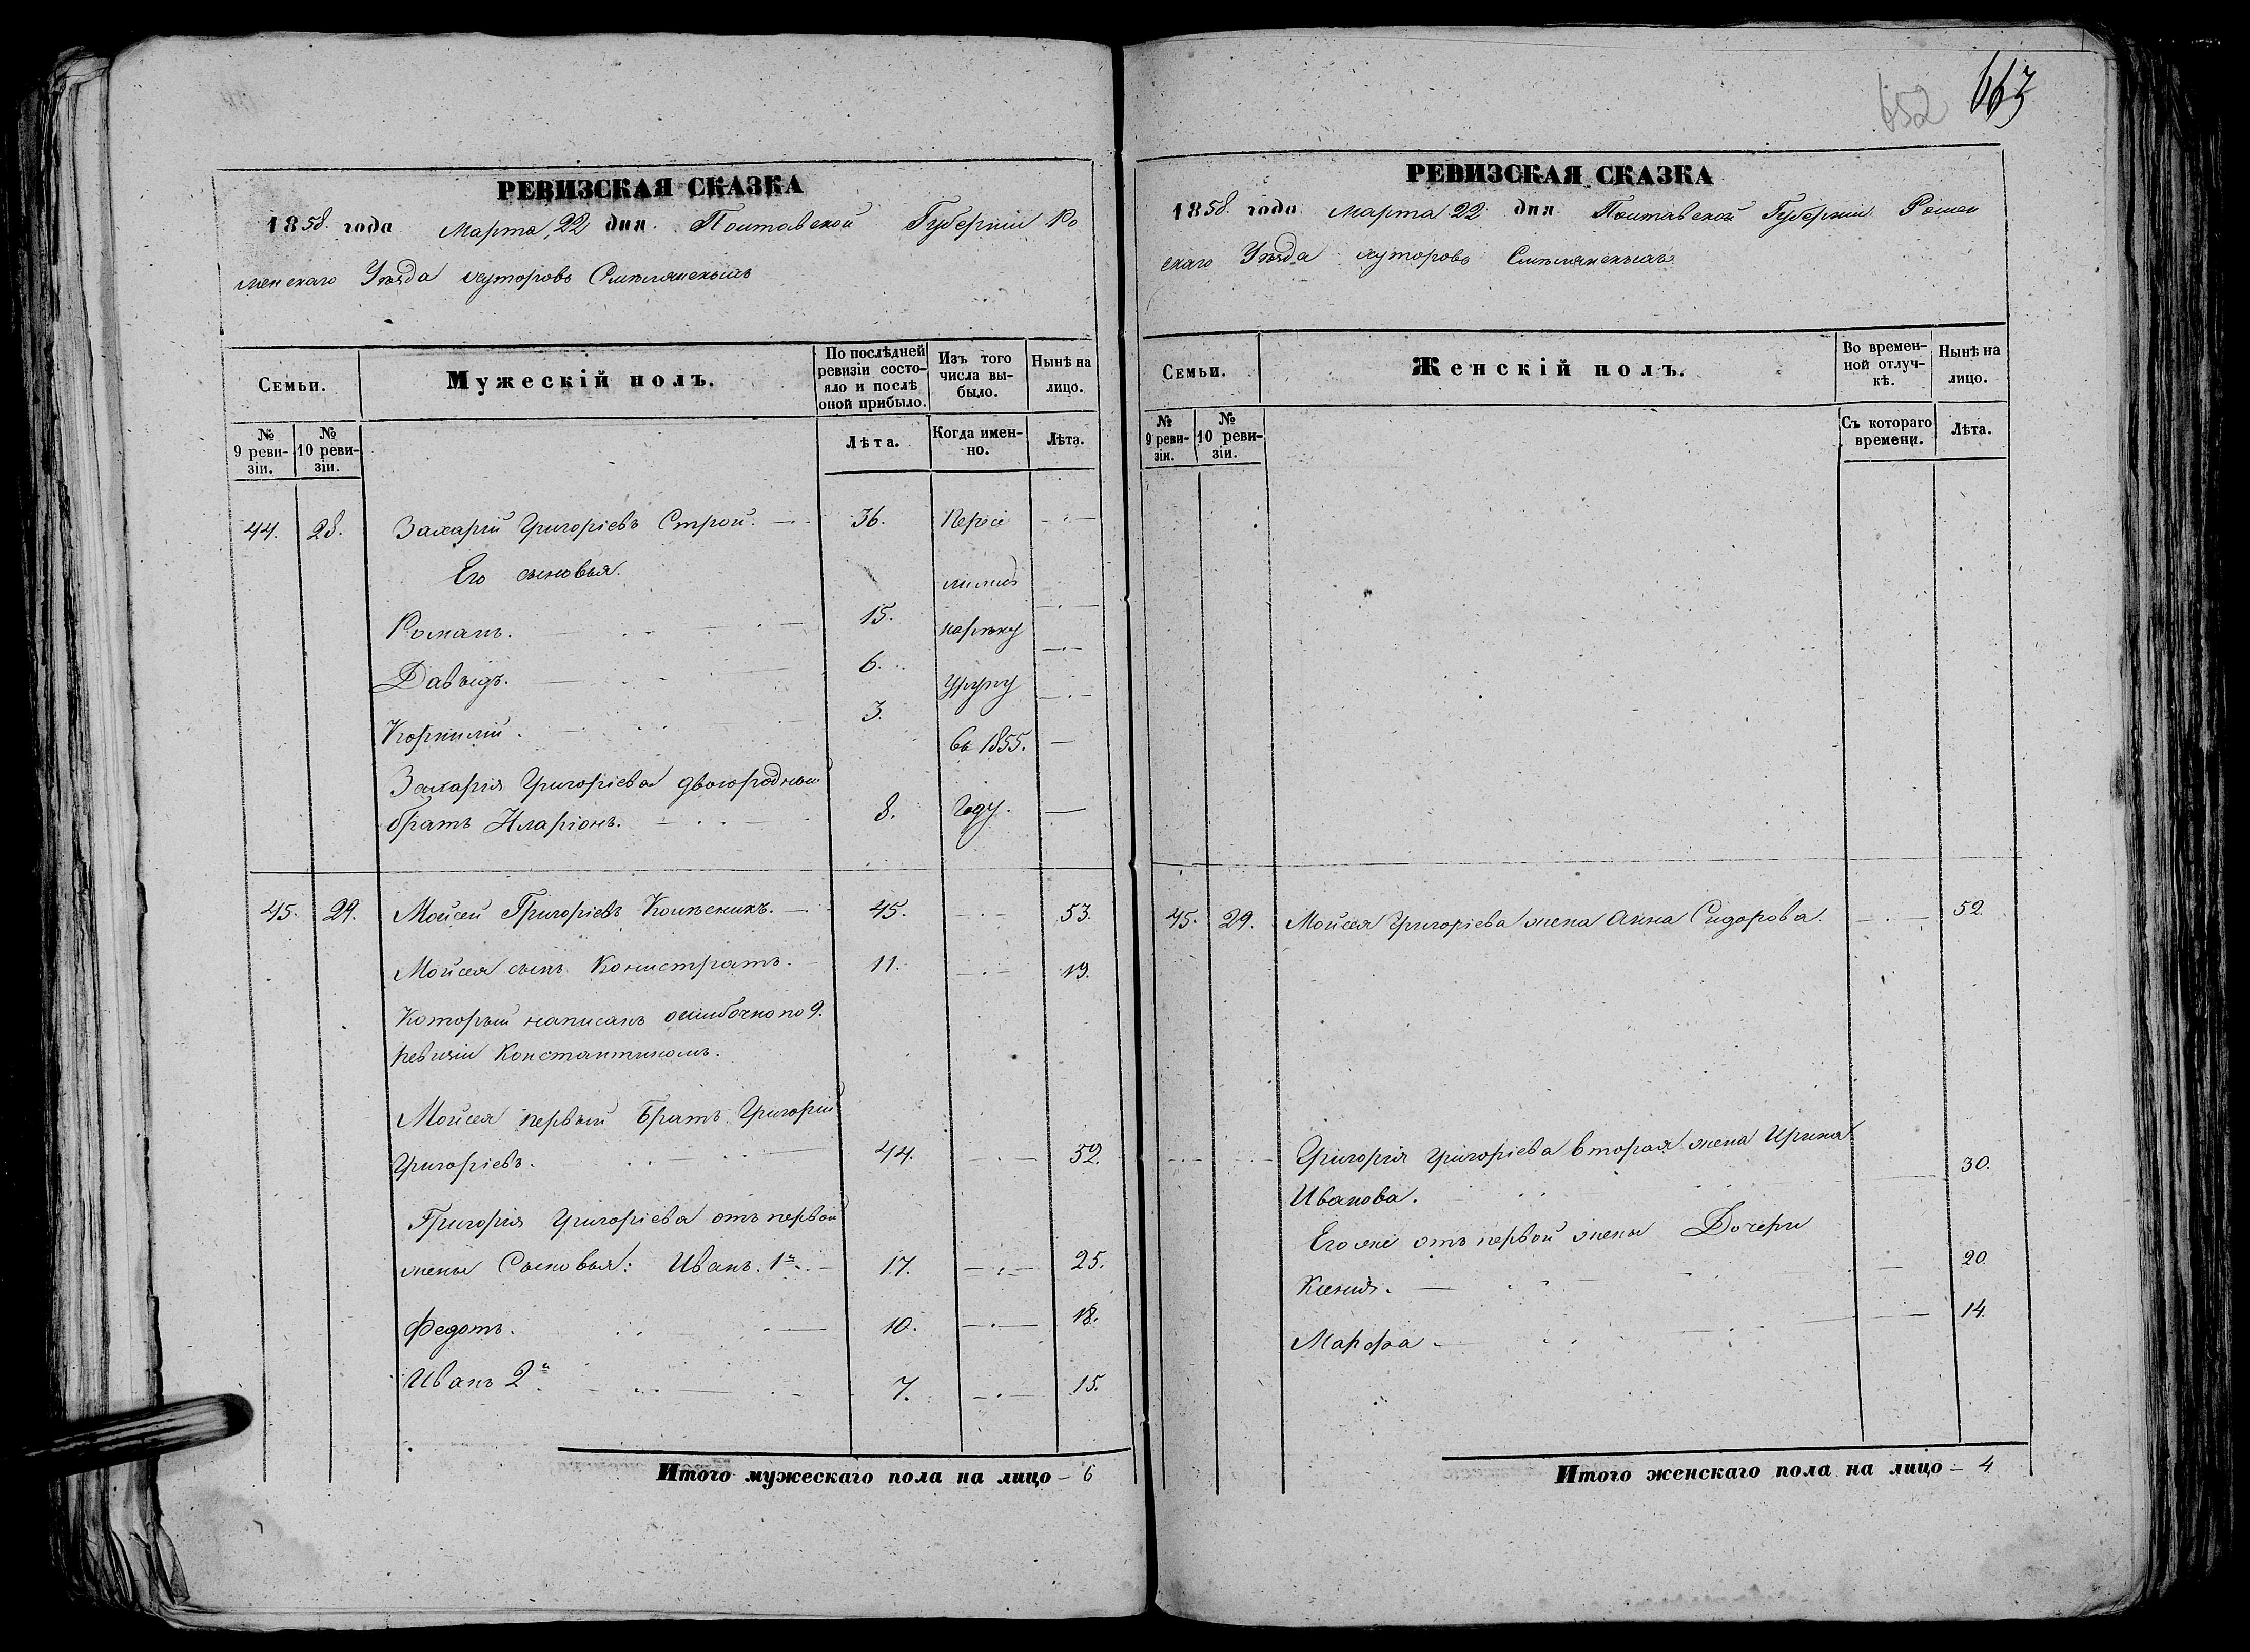 РЕВИЗСКАЯ СКАЗКА
1858 года Марта, 22 дня. Полтавской Губерніи Ро
менскаго Уѣзда хуторовъ Смѣлянскихъ
Семьи.
Мужескій полъ.
По послѣдней ревизіи состояло и послѣ оной прибыло.
Изъ того числа выбыло.
Нынѣ на лицо.
№ 9 ревизіи.
№ 10 ревизіи.
Лѣта.
Когда именно.
Лѣта.
44. 28. Захарій Григоріевъ Строй. 36. Пересе
Его сыновья.
Романъ. 15.
Давыдъ. 6.
Корнилій. 3. въ 1855.
Захарія Григоріева двоюродный
братъ Иларіонъ. 8. Году.
45. 29. Мойсей Григоріевъ Колѣсникъ. 45. 53.
Мойсея сынъ Калистратъ. 11. 19.
Который написанъ ошибочно по 9.
ревизіи Константиномъ.
Мойсея первый братъ Григорій
Григоріевъ. 44. 52.
Григорія Григоріева отъ первой
жены Сыновья: Иванъ 1й 17. 25.
Федотъ. 10. 18.
Иванъ 2й 7. 15.
Итого мужескаго пола на лицо – 6
652 663
РЕВИЗСКАЯ СКАЗКА
1858 года Марта 22 дня Полтавской Губерніи Ромен
скаго Уѣзда хуторовъ Смѣлянскихъ
Семьи.
Женскій полъ.
Во временной отлучкѣ.
Нынѣ на лицо.
№ 9 ревизіи.
№ 10 ревизіи.
Съ котораго времени.
Лѣта.
45. 29. Мойсея Григоріева жена Анна Сидорова. 52.
Григорія Григоріева вторая жена Ирина
Иванова. 30.
Его же отъ первой жены Дочери
Ксенія. 20.
Марфа 14.
Итого женскаго пола на лицо – 4